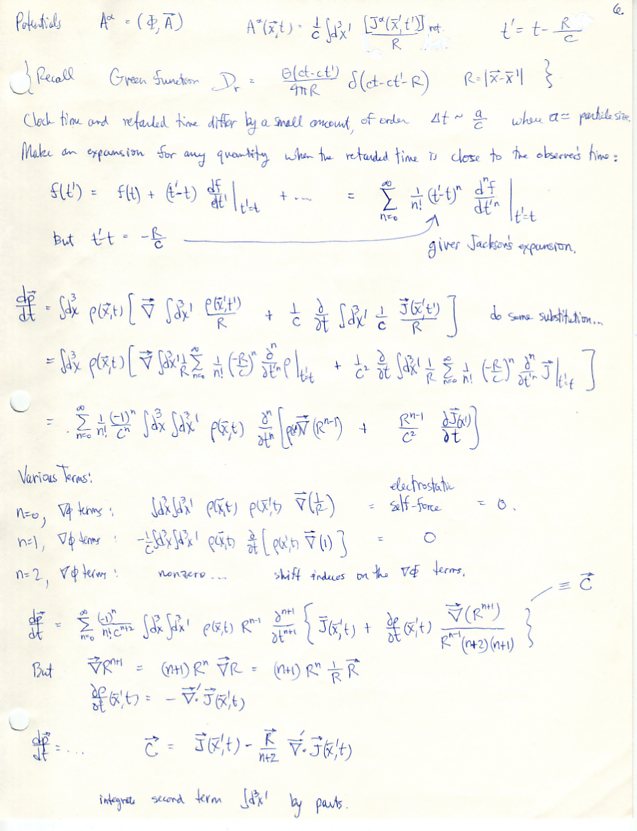 6.
Potentials A^α = (Φ, A⃗) A^α(x⃗,t) = 1/c ∫d³x' [J^α(x⃗',t')]ret / R t' = t - R/c
{ Recall Green function D_r = θ(ct-ct')/4πR δ(ct-ct'-R) R = |x⃗-x⃗'| }
Clock time and retarded time differ by a small amount, of order Δt ~ a/c where a = particle size.
Make an expansion for any quantity when the retarded time is close to the observer's time:
f(t') = f(t) + (t'-t) df/dt' |t'=t + .... = ∞Σn=0 1/n! (t'-t)^n d^n f/dt'^n |t'=t
But t'-t = -R/c gives Jackson's expansion.
dp⃗/dt = ∫d³x ρ(x⃗,t) [ ∇⃗ ∫d³x' ρ(x⃗',t')/R + 1/c ∂/∂t ∫d³x' 1/c J⃗(x⃗',t')/R ] do some substitution...
= ∫d³x ρ(x⃗,t) [ ∇⃗ ∫d³x' 1/R ∞Σn=0 1/n! (-R/c)^n ∂^n/∂t'^n ρ |t'=t + 1/c² ∂/∂t ∫d³x' 1/R ∞Σn=0 1/n! (-R/c)^n ∂^n/∂t'^n J⃗ |t'=t ]
= ∞Σn=0 1/n! (-1)^n/c^n ∫d³x ∫d³x' ρ(x⃗,t) ∂^n/∂t^n [ρ(x') ∇⃗(R^n-1) + R^n-1/c² ∂J⃗(x')/∂t]
Various Terms:
n=0, ∇Φ terms: ∫d³x∫d³x' ρ(x⃗,t) ρ(x⃗',t) ∇⃗(1/R) = electrostatic self-force = 0.
n=1, ∇Φ terms: -1/c ∫d³x∫d³x' ρ(x⃗,t) ∂/∂t [ρ(x⃗',t) ∇⃗(1)] = 0
n=2, ∇Φ terms: nonzero ... shift indices on the ∇Φ terms.
dp⃗/dt = ∞Σn=0 (-1)^n/n!c^n+2 ∫d³x∫d³x' ρ(x⃗,t) R^n-1 ∂^n+1/∂t^n+1 { J⃗(x⃗',t) + ∂ρ/∂t(x⃗',t) ∇⃗(R^n+1)/R^n-1(n+2)(n+1) } ≡ C⃗
But ∇⃗R^n+1 = (n+1) R^n ∇⃗R = (n+1) R^n 1/R R⃗
∂ρ/∂t(x⃗',t) = - ∇⃗'· J⃗(x⃗',t)
dp⃗/dt = ... C⃗ = J⃗(x⃗',t) - R⃗/n+2 ∇⃗'· J⃗(x⃗',t)
integrate second term ∫d³x' by parts.